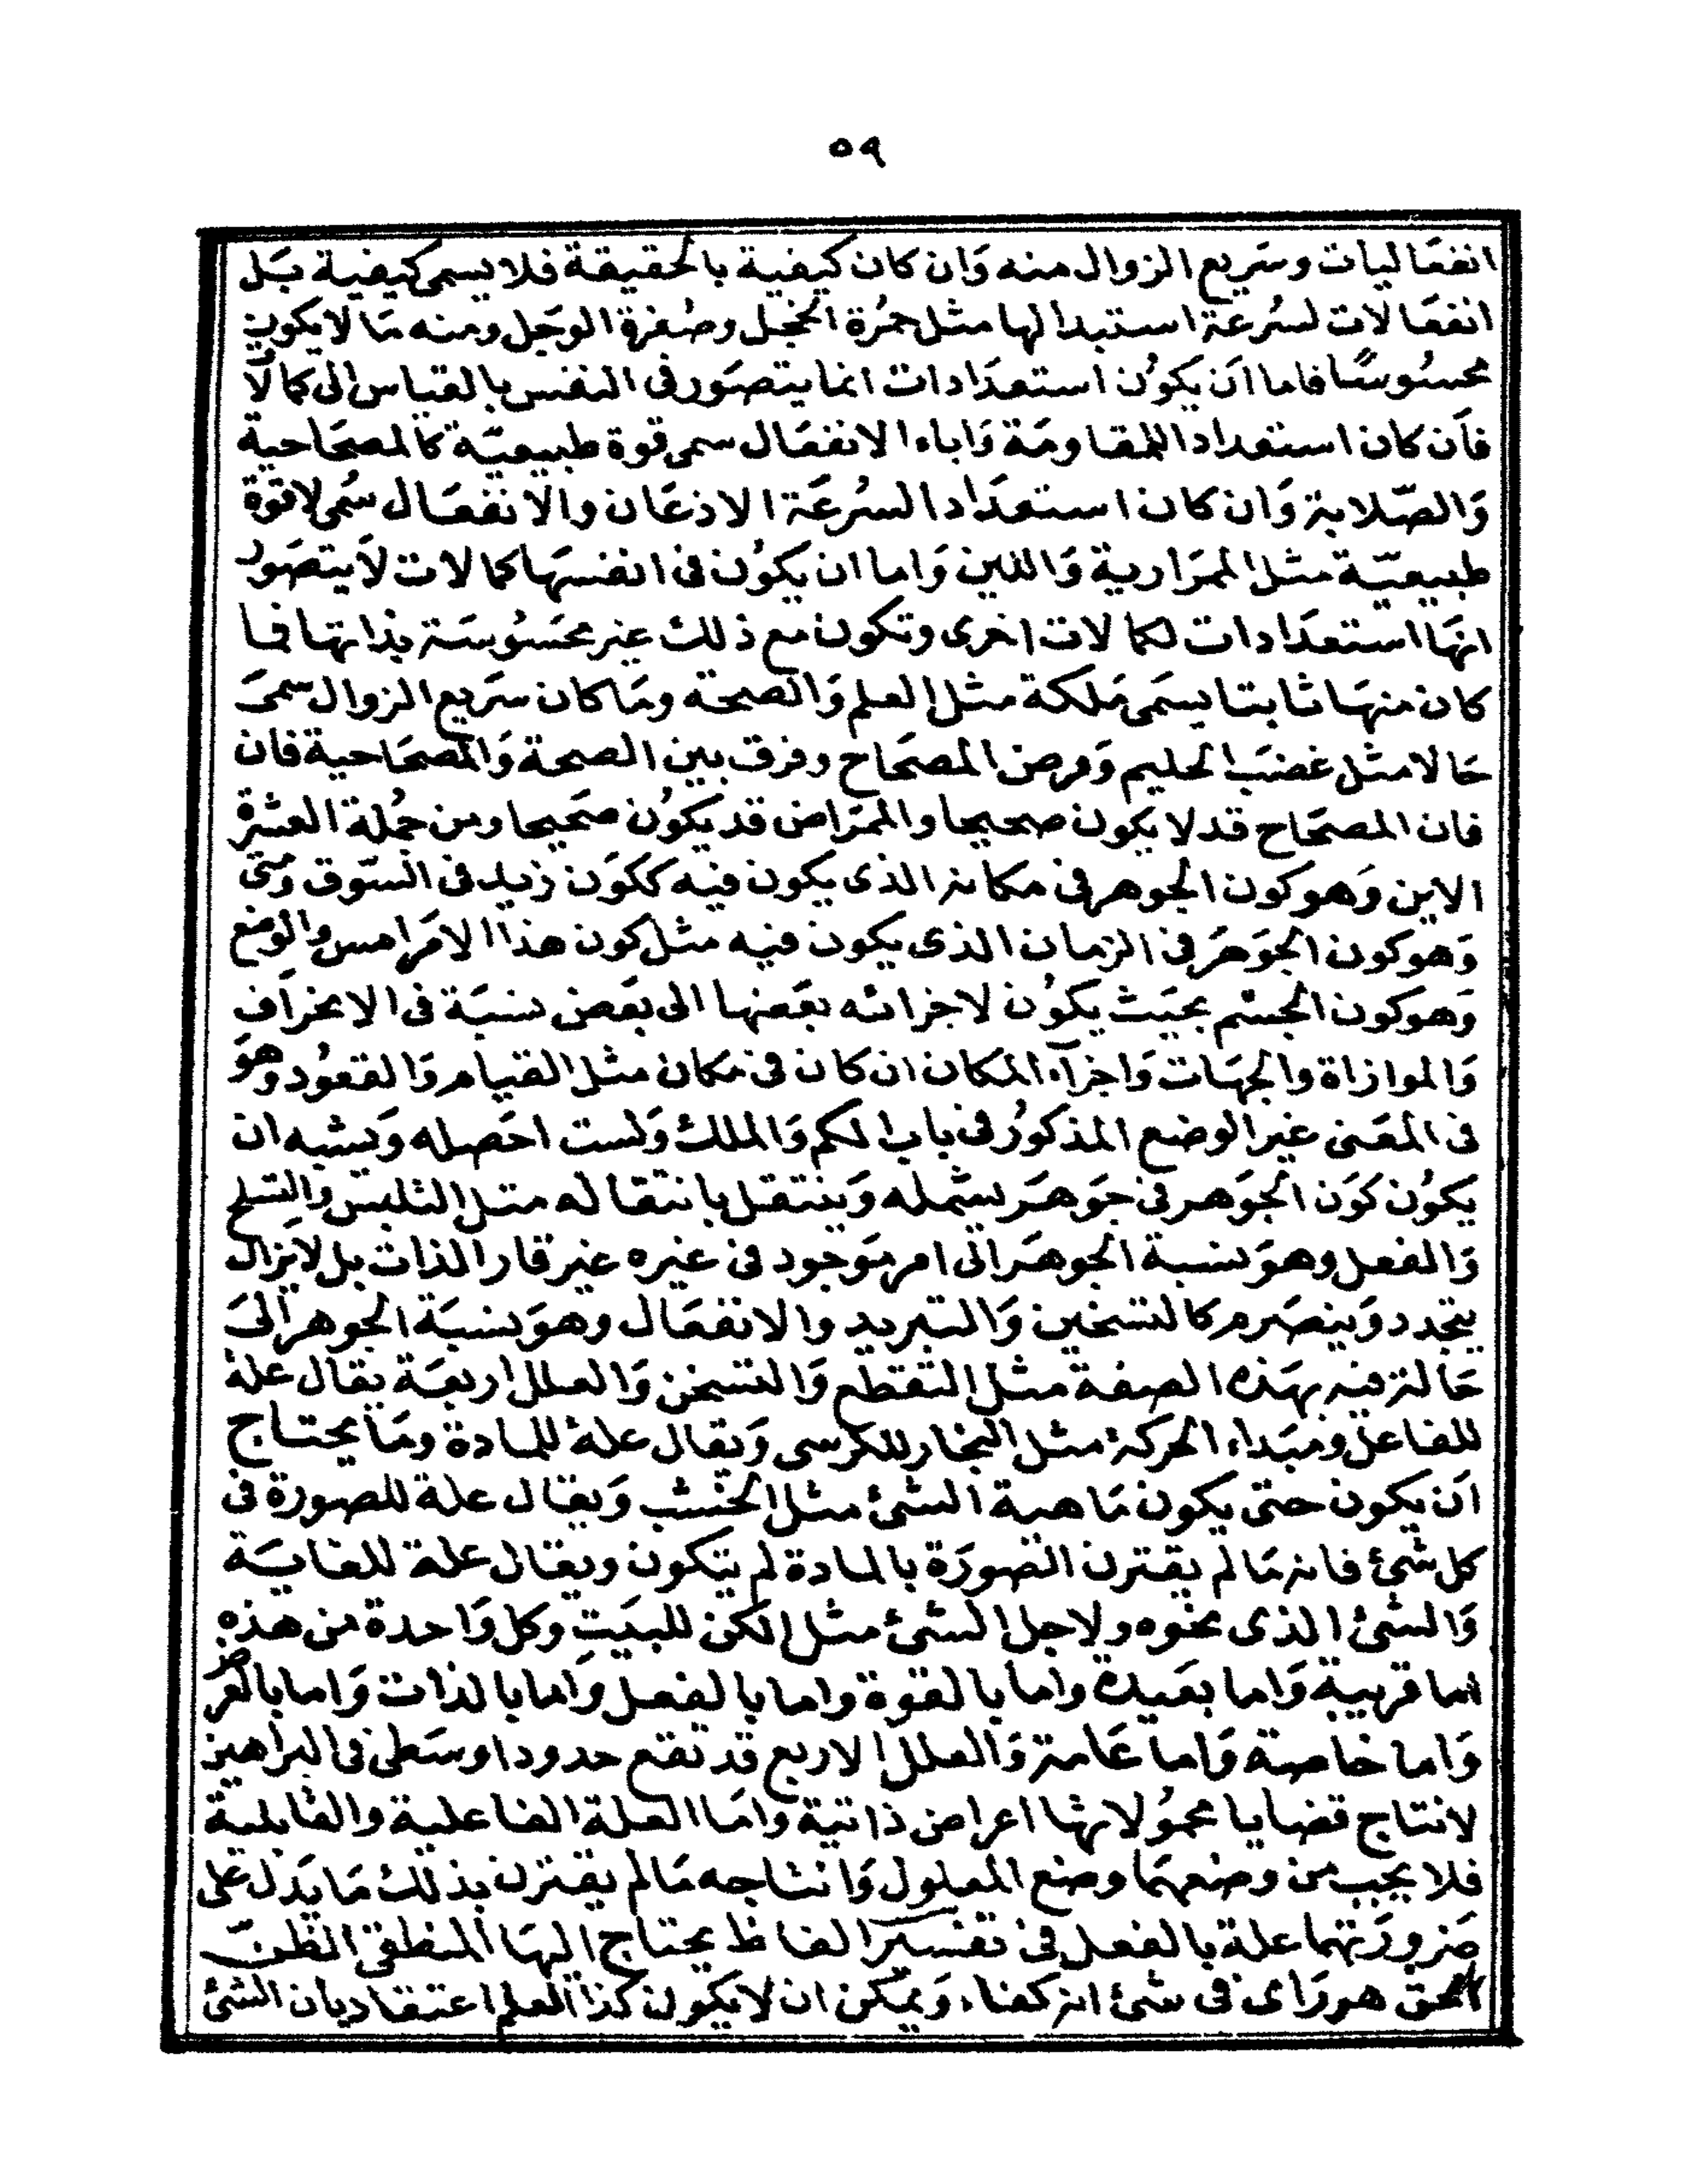 ٥٩
انفعاليات وسريع الزوال منه وان كان كيفية بالحقيقة فلا يسمى كيفية بل
انفعالات لسرعة استبدالها مثل حمرة الخجل وصفرة الوجل ومنه ما لا يكون
محسوسا فاما ان يكون استعدادات انما يتصور فى النفس بالقياس الى كمالا
فان كان استعدادا للمقاومة واباء الانفعال سمى قوة طبيعية كالمصحاحية
والصلابة وان كان استعدادا لسرعة الاذعان والانفعال سمى لا قوة
طبيعية مثل الممرارية واللين واما ان يكون فى انفسها كمالات لا يتصور
انها استعدادات لكمالات اخرى وتكون مع ذلك غير محسوسة بذاتها فما
كان منها ثابتا يسمى ملكة مثل العلم والصحة وما كان سريع الزوال سمى
حالا مثل غضب الحليم ومرض المصحاح وفرق بين الصحة والمصحاحية فان
فان المصحاح قد لا يكون صحيحا والممراض قد يكون صحيحا ومن جملة العشرة
الاين وهو كون الجوهر فى مكانه الذى يكون فيه ككون زيد فى السوق ومتى
وهو كون الجوهر فى الزمان الذى يكون فيه مثل كون هذا الامر امس والوضع
وهو كون الجسم بحيث يكون لاجزائه بعضها الى بعض نسبة فى الانحراف
والموازاة والجهات واجزاء المكان ان كان فى مكان مثل القيام والقعود وهو
فى المعنى غير الوضع المذكور فى باب الكم والملك ولست احصله ويشبه ان
يكون كون الجوهر فى جوهر يشمله وينتقل بانتقاله مثل التلبس والتسلح
والفعل وهو نسبة الجوهر الى امر موجود فى غيره غير قار الذات بل لا يزال
يتجدد وينصرم كالتسخين والتبريد والانفعال وهو نسبة الجوهر الى
حالة فيه بهذه الصفة مثل التقطع والتسخن والعلل اربعة يقال علة
للفاعل ومبداء الحركة مثل النجار للكرسى ويقال علة للمادة وما يحتاج
ان يكون حتى يكون ماهية الشئ مثل الخشب ويقال علة للصورة فى
كل شئ فانه ما لم يقترن الصورة بالمادة لم يتكون ويقال علة للغاية
والشئ الذى نحوه ولاجل الشئ مثل الكن للبيت وكل واحدة من هذه
اما قريبة واما بعيدة واما بالقوة واما بالفعل واما بالذات واما بالعرض
واما خاصة واما عامة والعلل الاربع قد تقع حدودا وسطى فى البراهين
لانتاج قضايا محمولاتها اعراض ذاتية واما العلة الفاعلية والقابلية
فلا يجب من وضعهما وضع المعلول وانتاجه ما لم يقترن بذلك ما يدل على
ضرورتهما علة بالفعل فى تفسير الفاظ يحتاج اليها المنطقى الظن
الحق هو راى فى شئ انه كذا، ويمكن ان لا يكون كذا العلم اعتقاد بان الشئ